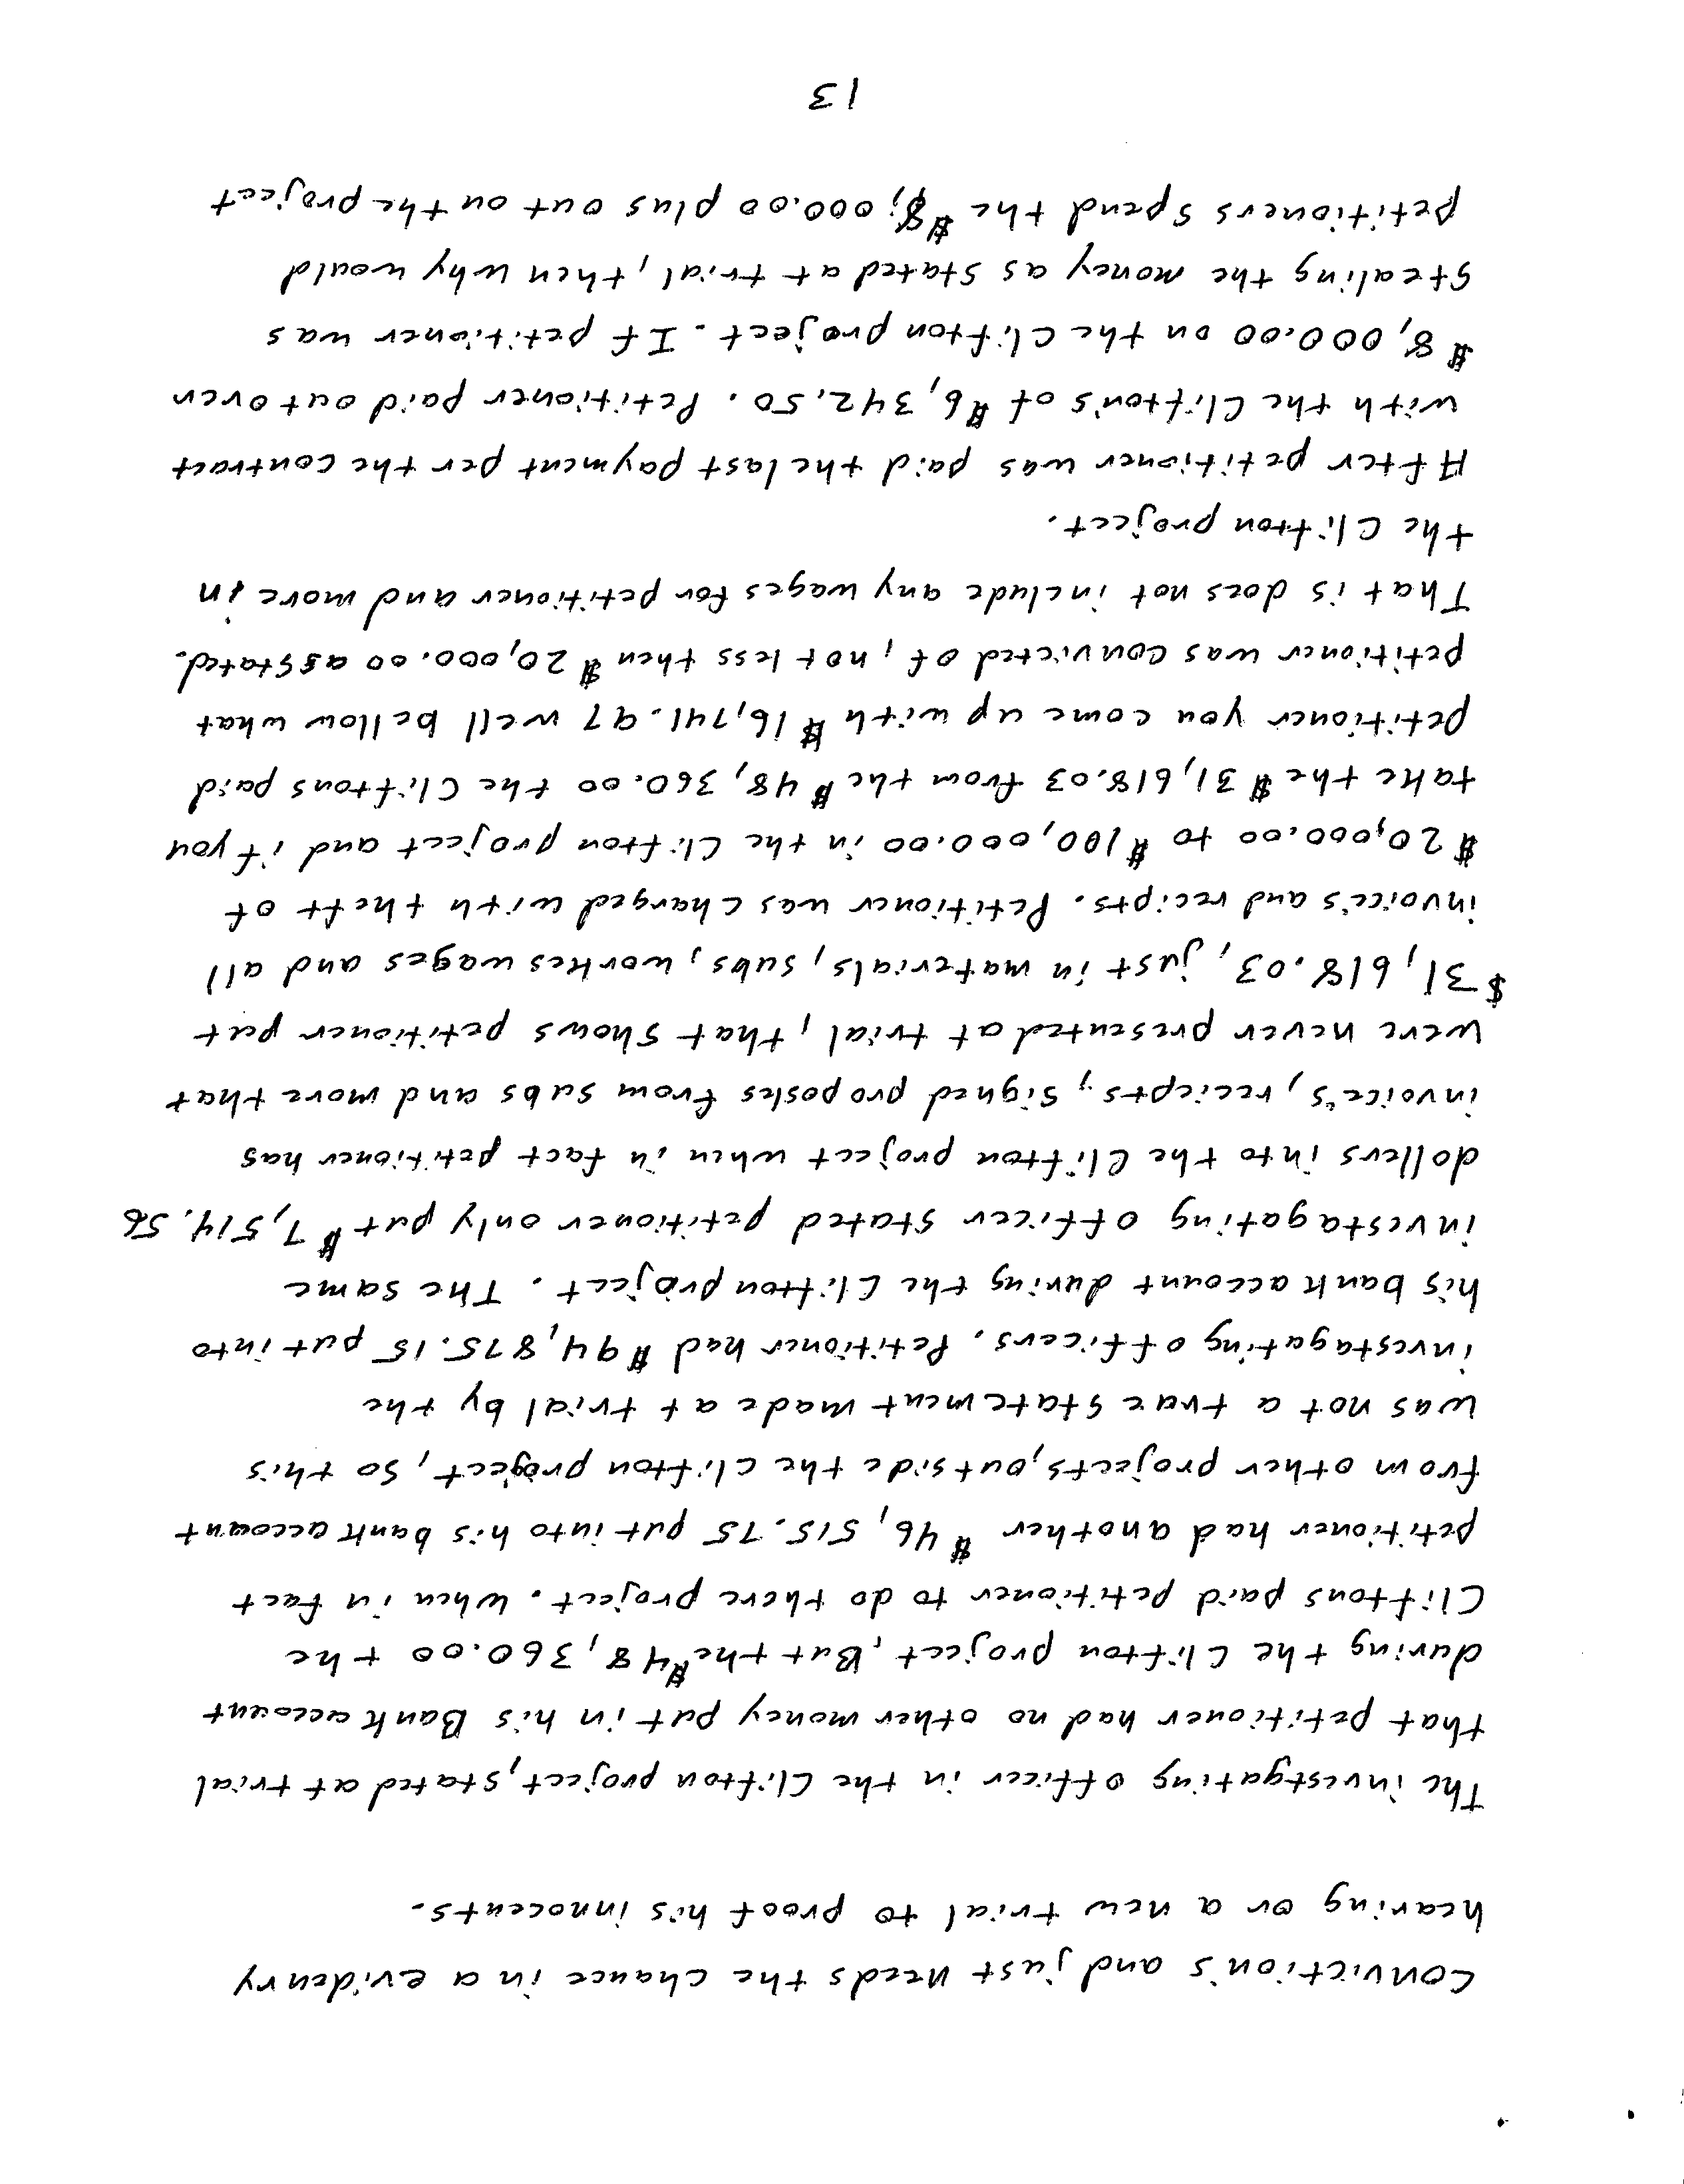 conviction's and just needs the chance in a evidenry
hearing or a new trial to proof his innocents.
The investgating officer in the Clifton project, stated at trial
that petitioner had no other money put in his Bank account
during the Clifton project, But the $48,360.00 the
Cliftons paid petitioner to do there project. When in fact
petitioner had another $46,515.75 put into his bank account
from other projects, outside the Clifton project, so this
was not a true statement made at trial by the
investagating officers. Petitioner had $94,875.15 put into
his bank account during the Clifton project. The same
investagating officer stated petitioner only put $7,514.56
dollers into the Clifton project when in fact petitioner has
invoice's, reciepts, signed proposles from subs and more that
were never presented at trial, that shows petitioner put
$31,618.03, just in materials, subs, workes wages and all
invoice's and recipts. Petitioner was charged with theft of
$20,000.00 to $100,000.00 in the Clifton project and if you
take the $31,618.03 from the $48,360.00 the Cliftons paid
petitioner you come up with $16,741.97 well bellow what
petitioner was convicted of, not less then $20,000.00 as stated.
That is does not include any wages for petitioner and more in
the Clifton project.
After petitioner was paid the last payment per the contract
with the Clifton's of $6,342.50. Petitioner paid out over
$8,000.00 on the Clifton project. If petitioner was
stealing the money as stated at trial, then why would
petitioners spend the $8,000.00 plus out on the project
13